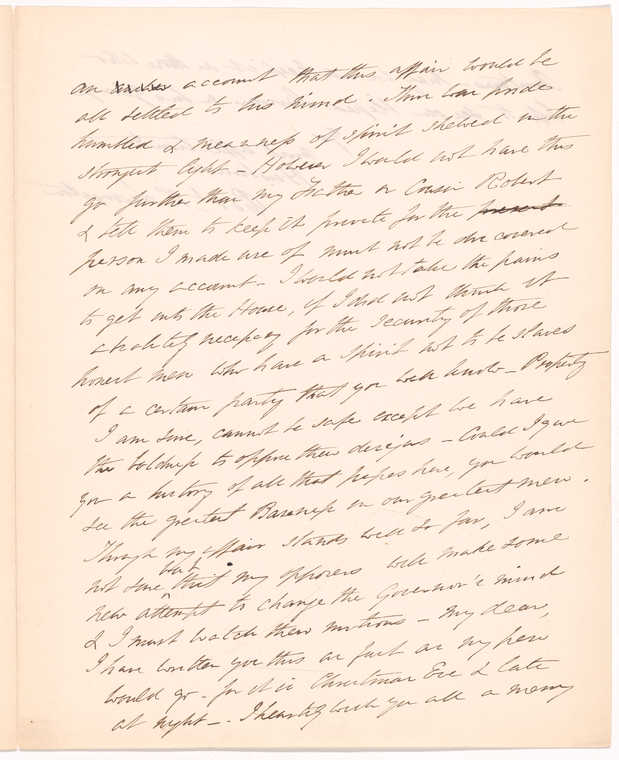 an account that this affair would be
all settled to his mind. Thus was pride
humbled & meanness of spirit shewed in the
strongest light – However I would not have this
go further than my Father or Cousin Robert
& tell them to keep it private for the present
person I made use of must not be discovered
on any account – I would not take the pains
to get into the House, if I did not think it
absolutely necessary for the security of those
honest men who have a spirit not to be slaves
of a certain party that you well know – Property
I am sure, cannot be safe except we have
the boldness to oppose their designs – Could I give
you a history of all that passes here, you would
see the greatest Baseness in our greatest men.
Though my affair stands well so far, I am
not sure, but that my opposers will make some
new attempt to change the Governor's mind
& I must watch their motions – My dear,
I have written you this as fast as my pen
would go – for it is Christmas Eve & late
at night – I heartily wish you all a merry